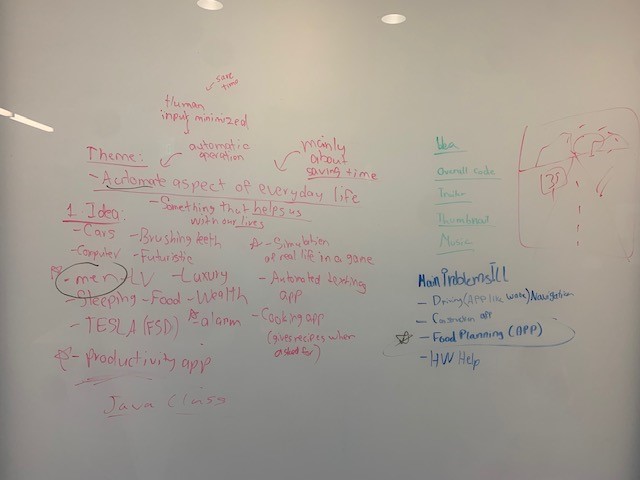 save time
Human
input minimized
automatic
operation
mainly
about
saving time
Theme:
- Automate aspect of everyday life
- Something that helps us
with our lives
1 Idea:
- Cars
- Computer
- men
- Sleeping
- TESLA (FSD)
- Productivity app
- Brushing teeth
- Futuristic
- LV
- Luxury
- Food
- Wealth
- alarm
- Simulation
of real life in a game
- Automated texting
app
- Cooking app
(gives recipes when
asked for)
Java Class
Idea
Overall code
Trailer
Thumbnail
Music
35
Main Problems
- Driving (APP like Waze) Navigation
- Food Planning (APP)
- HW Help